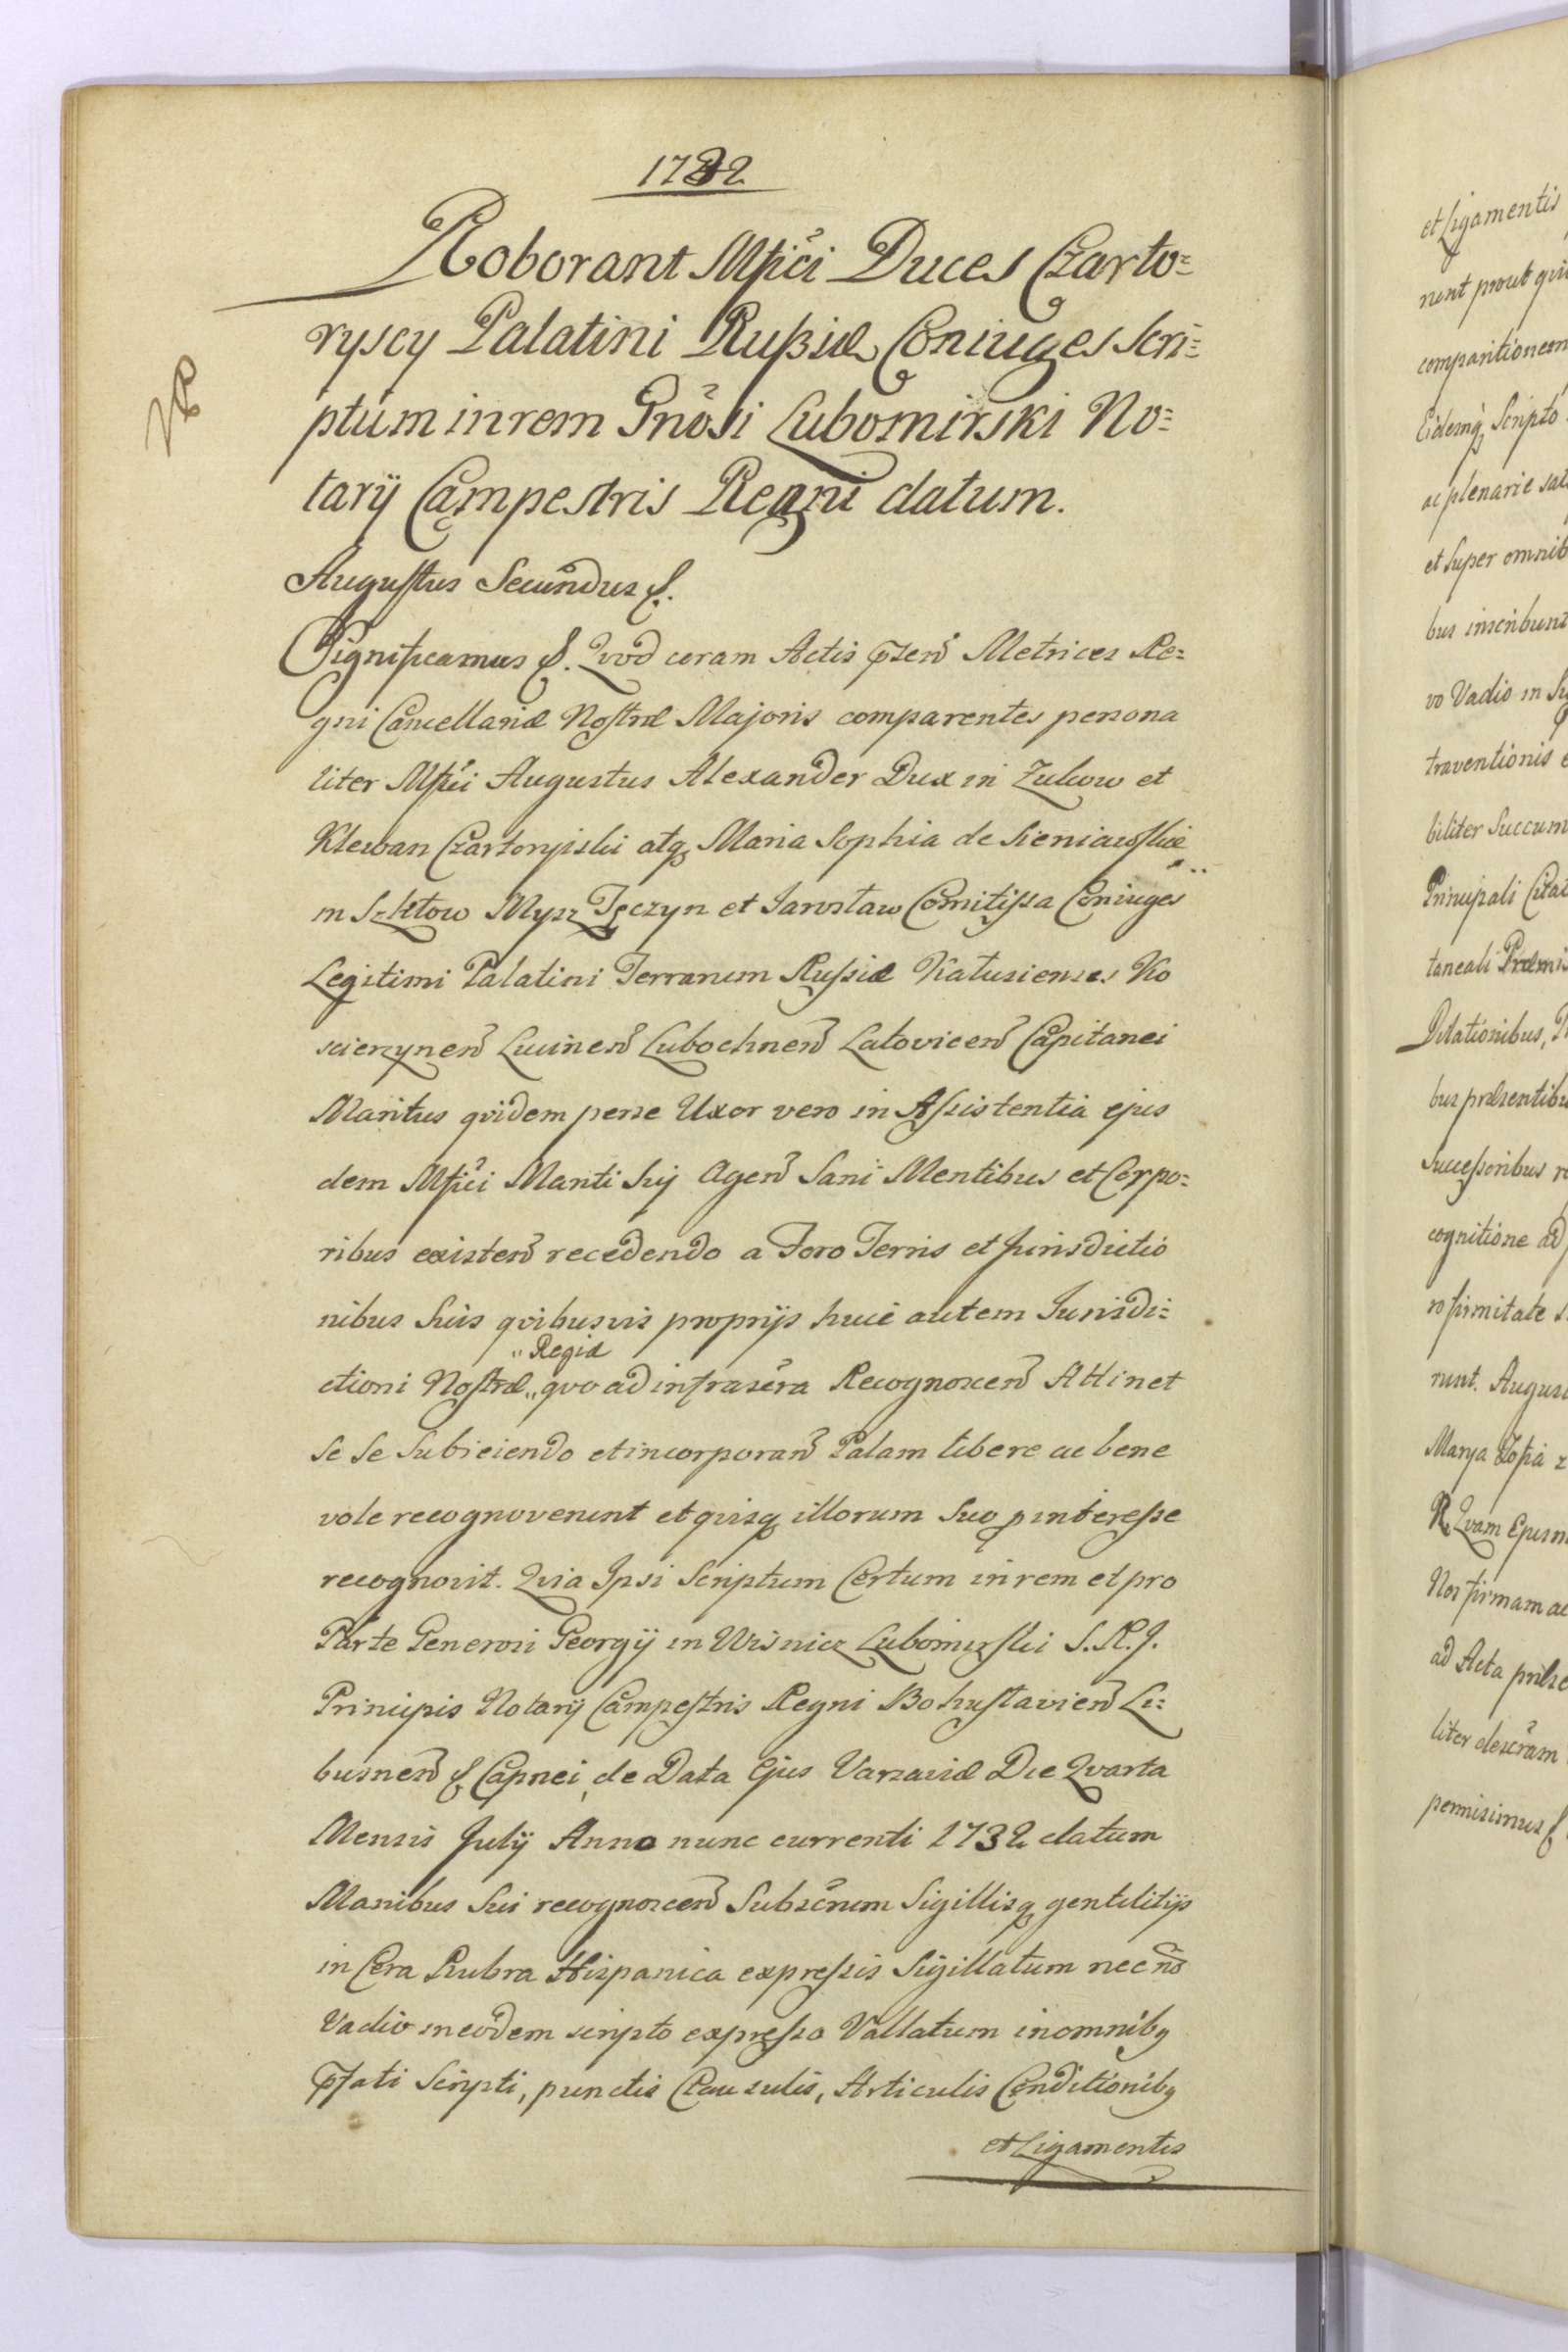 1732
Roborant Mfici Duces Czarto=
ryscy Palatini Rußiæ Coniuges Scri=
ptum in rem Gnosi Lubomirski No=
tarÿ Campestris Regni datum.
VR
Augustus Secundus &.
Significamus &. Qvod coram Actis pzen Metrices Re=
gni Cancellariæ Nostræ Majoris comparentes persona
liter Mfici Augustus Alexander Dux in Zukow et
Klewan Czartoryiski atq Maria Sophia de Sieniawskie
in Szkłow Mysz Tęczyn et Jarosław Comitissa Coniuges
Legitimi Palatini Terrarum Russiæ Kałusienses Ko
scierzynen Lucinen Lubochnen Latovicen Capitanei
Maritus qvidem per se Uxor vero in Assistentia ejus
dem Mfici Mariti Sui Agen Sani Mentibus et Corpo=
ribus existen recedendo a Foro Terris et Jurisdictio
nibus Suis qvibusvis proprijs huic autem Jurisdi=
„ Regiæ
ctioni Nostræ „ qvo ad infrascra Recognoscen Attinet
Se Se Subiciendo et incorporan Palam libere ac bene
vole recognoverunt et qvisq illorum Suo p interesse
recognovit. Qvia Ipsi Scriptum Certum in rem et pro
Parte Generosi Georgÿ in Wisnicz Lubomirski S. R. I.
Principis Notarÿ Campestris Regni Bohuslavien Li=
busnen & Capnei, de Data Ejus Varsaviæ Die Qvarta
Mensis Julÿ Anno nunc currenti 1732 datum
Manibus Sui recognoscen Subscrum Sigillisq gentilitijs
in Cera Rubra Hispanica expressis Sigillatum nec no
Vadio in eodem scripto expresso Vallatum in omnibq
pfati Scripti, punctis Clausulis, Articulis Conditionibq
et Ligamentis
et Ligamentis
nent prout qvi
comparitionem
Eidemq Scripto
ac plenarie sat
et Super omnib
bus inscribunt
vo Vadio in
traventionis
biliter Succum
Principali Citat
taneali Præmis
Dilationibus,
bus præsentibu
Successoribus
cognitione ad
ro firmitate
runt. August
Marya Zofia z
R. Qvam
Nos firmam ac
ad Acta
liter descram
permisimus &